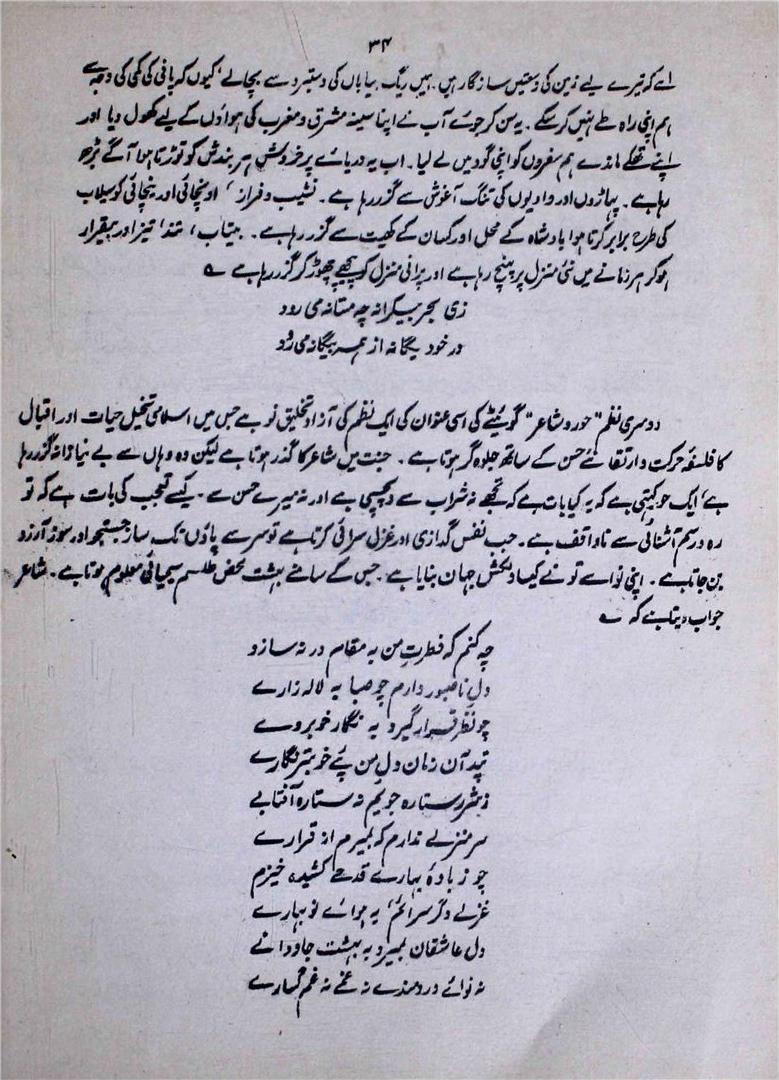 ۳۴
اے کہ تیرے لیے زمین کی وسعتیں سازگار ہیں۔ ہمیں ریگ بیاباں کی دستبرد سے بچالے، کیوں کہ پانی کی کمی کی وجہ سے
ہم اپنی راہ طے نہیں کر سکے۔ یہ سن کر جوئے آب نے اپنا سینہ مشرق و مغرب کی ہواؤں کے لیے کھول دیا اور
اپنے تھکے ماندے ہم سفروں کو اپنی گود میں لے لیا۔ اب یہ دریائے پر خروش ہر بندش کو توڑتا ہوا آگے بڑھ
رہا ہے۔ پہاڑوں اور وادیوں کی تنگ آغوش سے گزر رہا ہے۔ نشیب و فراز، اونچائی اور نیچائی کو سیلاب
کی طرح برابر کرتا ہوا بادشاہ کے محل اور کسان کے کھیت سے گزر رہا ہے۔ بیتاب، تند، تیز اور بیقرار
ہو کر ہر زمانے میں نئی منزل پر پہنچ رہا ہے اور پرانی منزل کو پیچھے چھوڑ کر گزر رہا ہے ؎
زی بحر بیکرانہ چہ مستانہ می رود
در خود یگانہ از ہمہ بیگانہ می رود
دوسری نظم "حور و شاعر" گوئیٹے کی اسی عنوان کی ایک نظم کی آزاد تخلیق نو ہے جس میں اسلامی تخیل حیات اور اقبال
کا فلسفۂ حرکت و ارتقا نئے حسن کے ساتھ جلوہ گر ہوتا ہے۔ جنت میں شاعر کا گذر ہوتا ہے لیکن وہ وہاں سے بے نیازانہ گزر رہا
ہے، ایک حور کہتی ہے کہ یہ کیا بات ہے کہ تجھے نہ شراب سے دلچسپی ہے اور نہ میرے حسن سے۔ کیسے تعجب کی بات ہے کہ تو
رہ و رسم آشنائی سے ناواقف ہے۔ جب نفس گدازی اور غزل سرائی کرتا ہے تو سر سے پاؤں تک ساز جستجو اور سوز آرزو
بن جاتا ہے۔ اپنی نوا سے تو نے کیسا دلکش جہان بنایا ہے۔ جس کے سامنے بہشت محض طلسم سیمیائی معلوم ہوتا ہے۔ شاعر
جواب دیتا ہے کہ ؎
چہ کنم کہ فطرتِ من بہ مقام در نہ سازد
دلِ ناصبور دارم چو صبا بہ لالہ زارے
چو نظر قرار گیرد بہ نگار خوبروے
تپد آن زمان دلِ من پئے خوبتر نگارے
ز شرر ستارہ جویم نہ ستارہ آفتابے
سر منزلے ندارم کہ بمیرم از قرارے
چو ز بادۂ بہارے قدحے کشیدہ خیزم
غزلے دگر سرائم، بہ ہوائے نو بہارے
دل عاشقان بمیرد بہ بہشت جاودانے
نہ نوائے دردمندے نہ غمے نہ غم گسارے